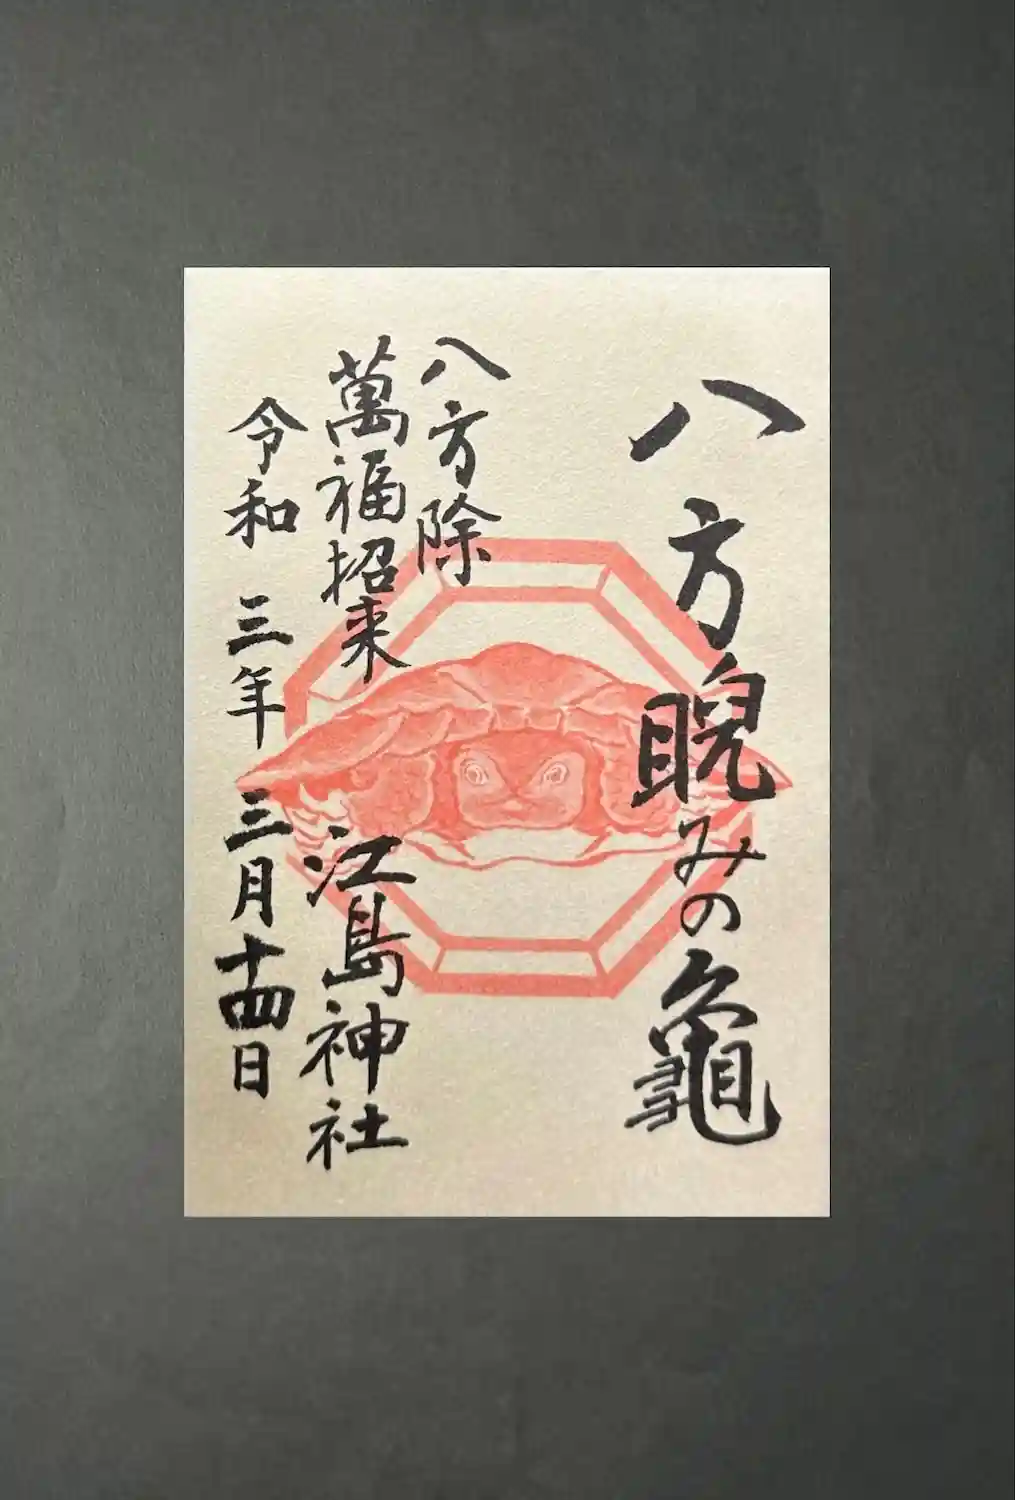 八方睨みの龜
八方除
萬福招来
江島神社
令和三年三月十四日